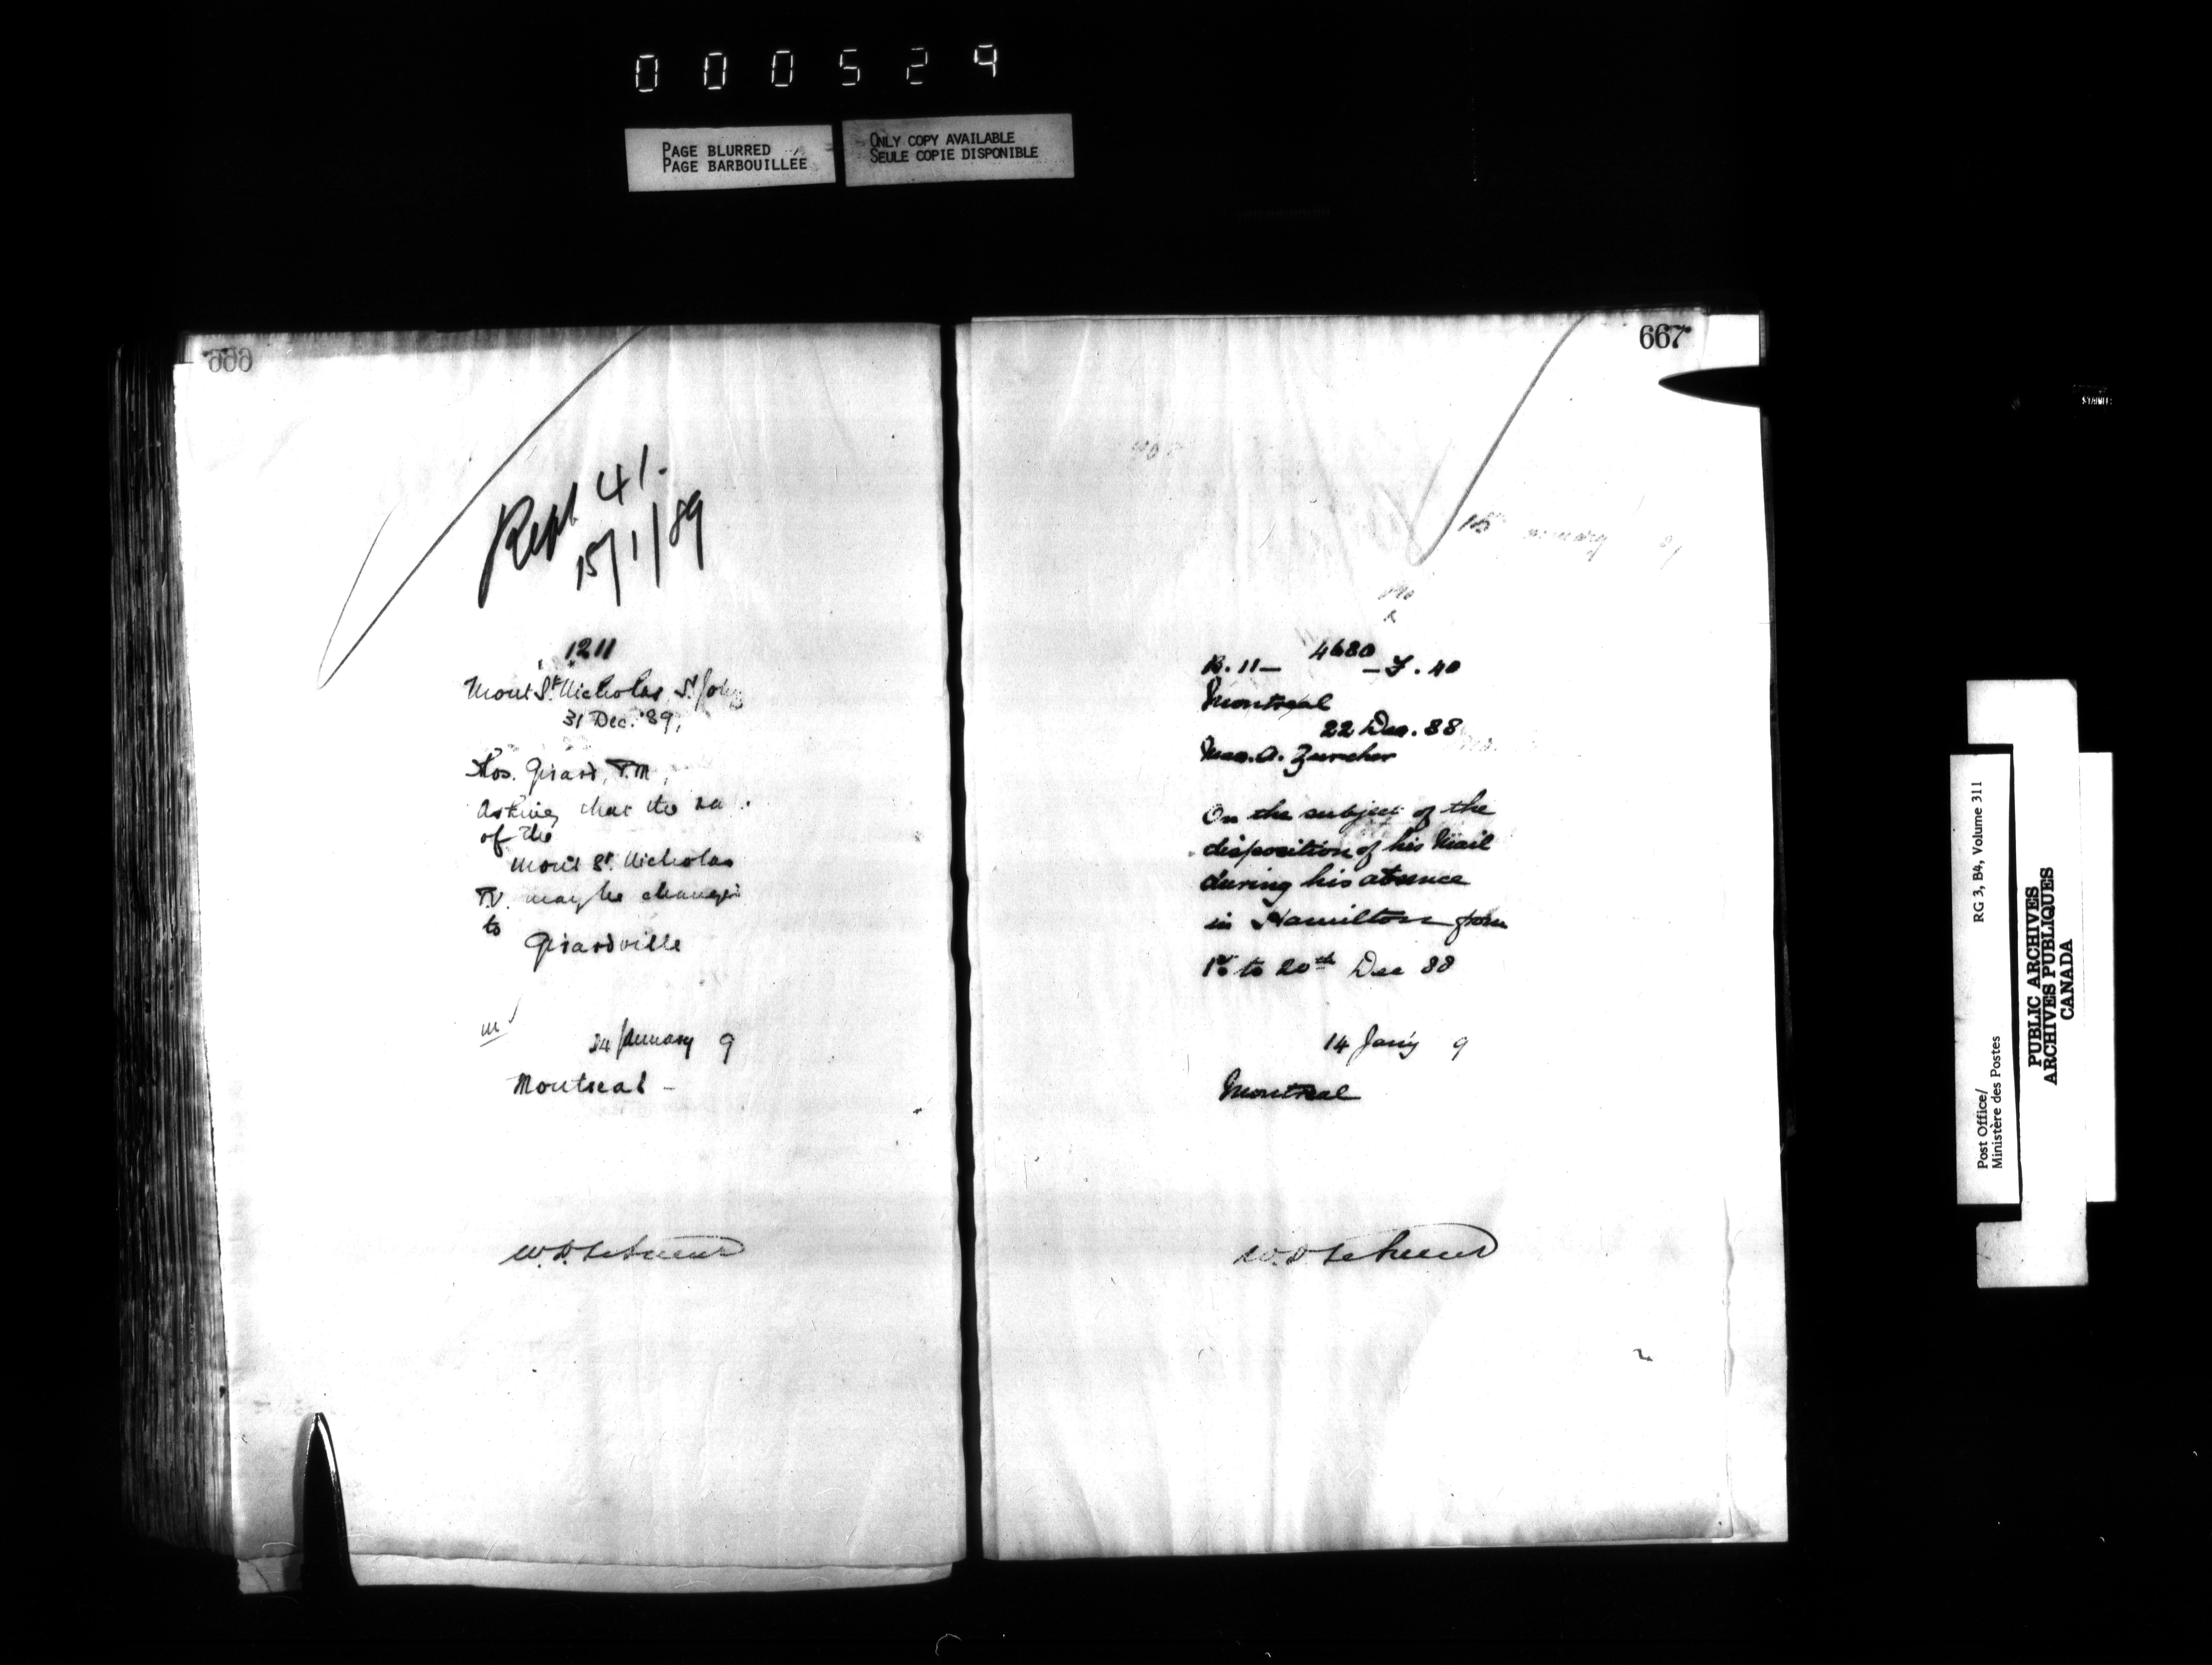 000529
PAGE BLURRED
PAGE BARBOUILLEE
ONLY COPY AVAILABLE
SEULE COPIE DISPONIBLE
666
Rept 41.
15/1/89
1211
Mont St. Nicholas, St. John
31 Dec. '89,
Thos. Girard, P.M.,
Asking that the
of the
Mont St. Nicholas
may be changed
to
Girardville
24 January 9
Montreal -
W. D. LeSueur
667
15 January
B. 11 - 4680 - F. 40
Montreal
22 Dec. 88
A. Zurcher
On the subject of the
disposition of his Mail
during his absence
in Hamilton from
1st to 20th Dec 88
14 Jany 9
Montreal
W. D. LeSueur
Post Office/
Ministère des Postes
RG 3, B4, Volume 311
PUBLIC ARCHIVES
ARCHIVES PUBLIQUES
CANADA